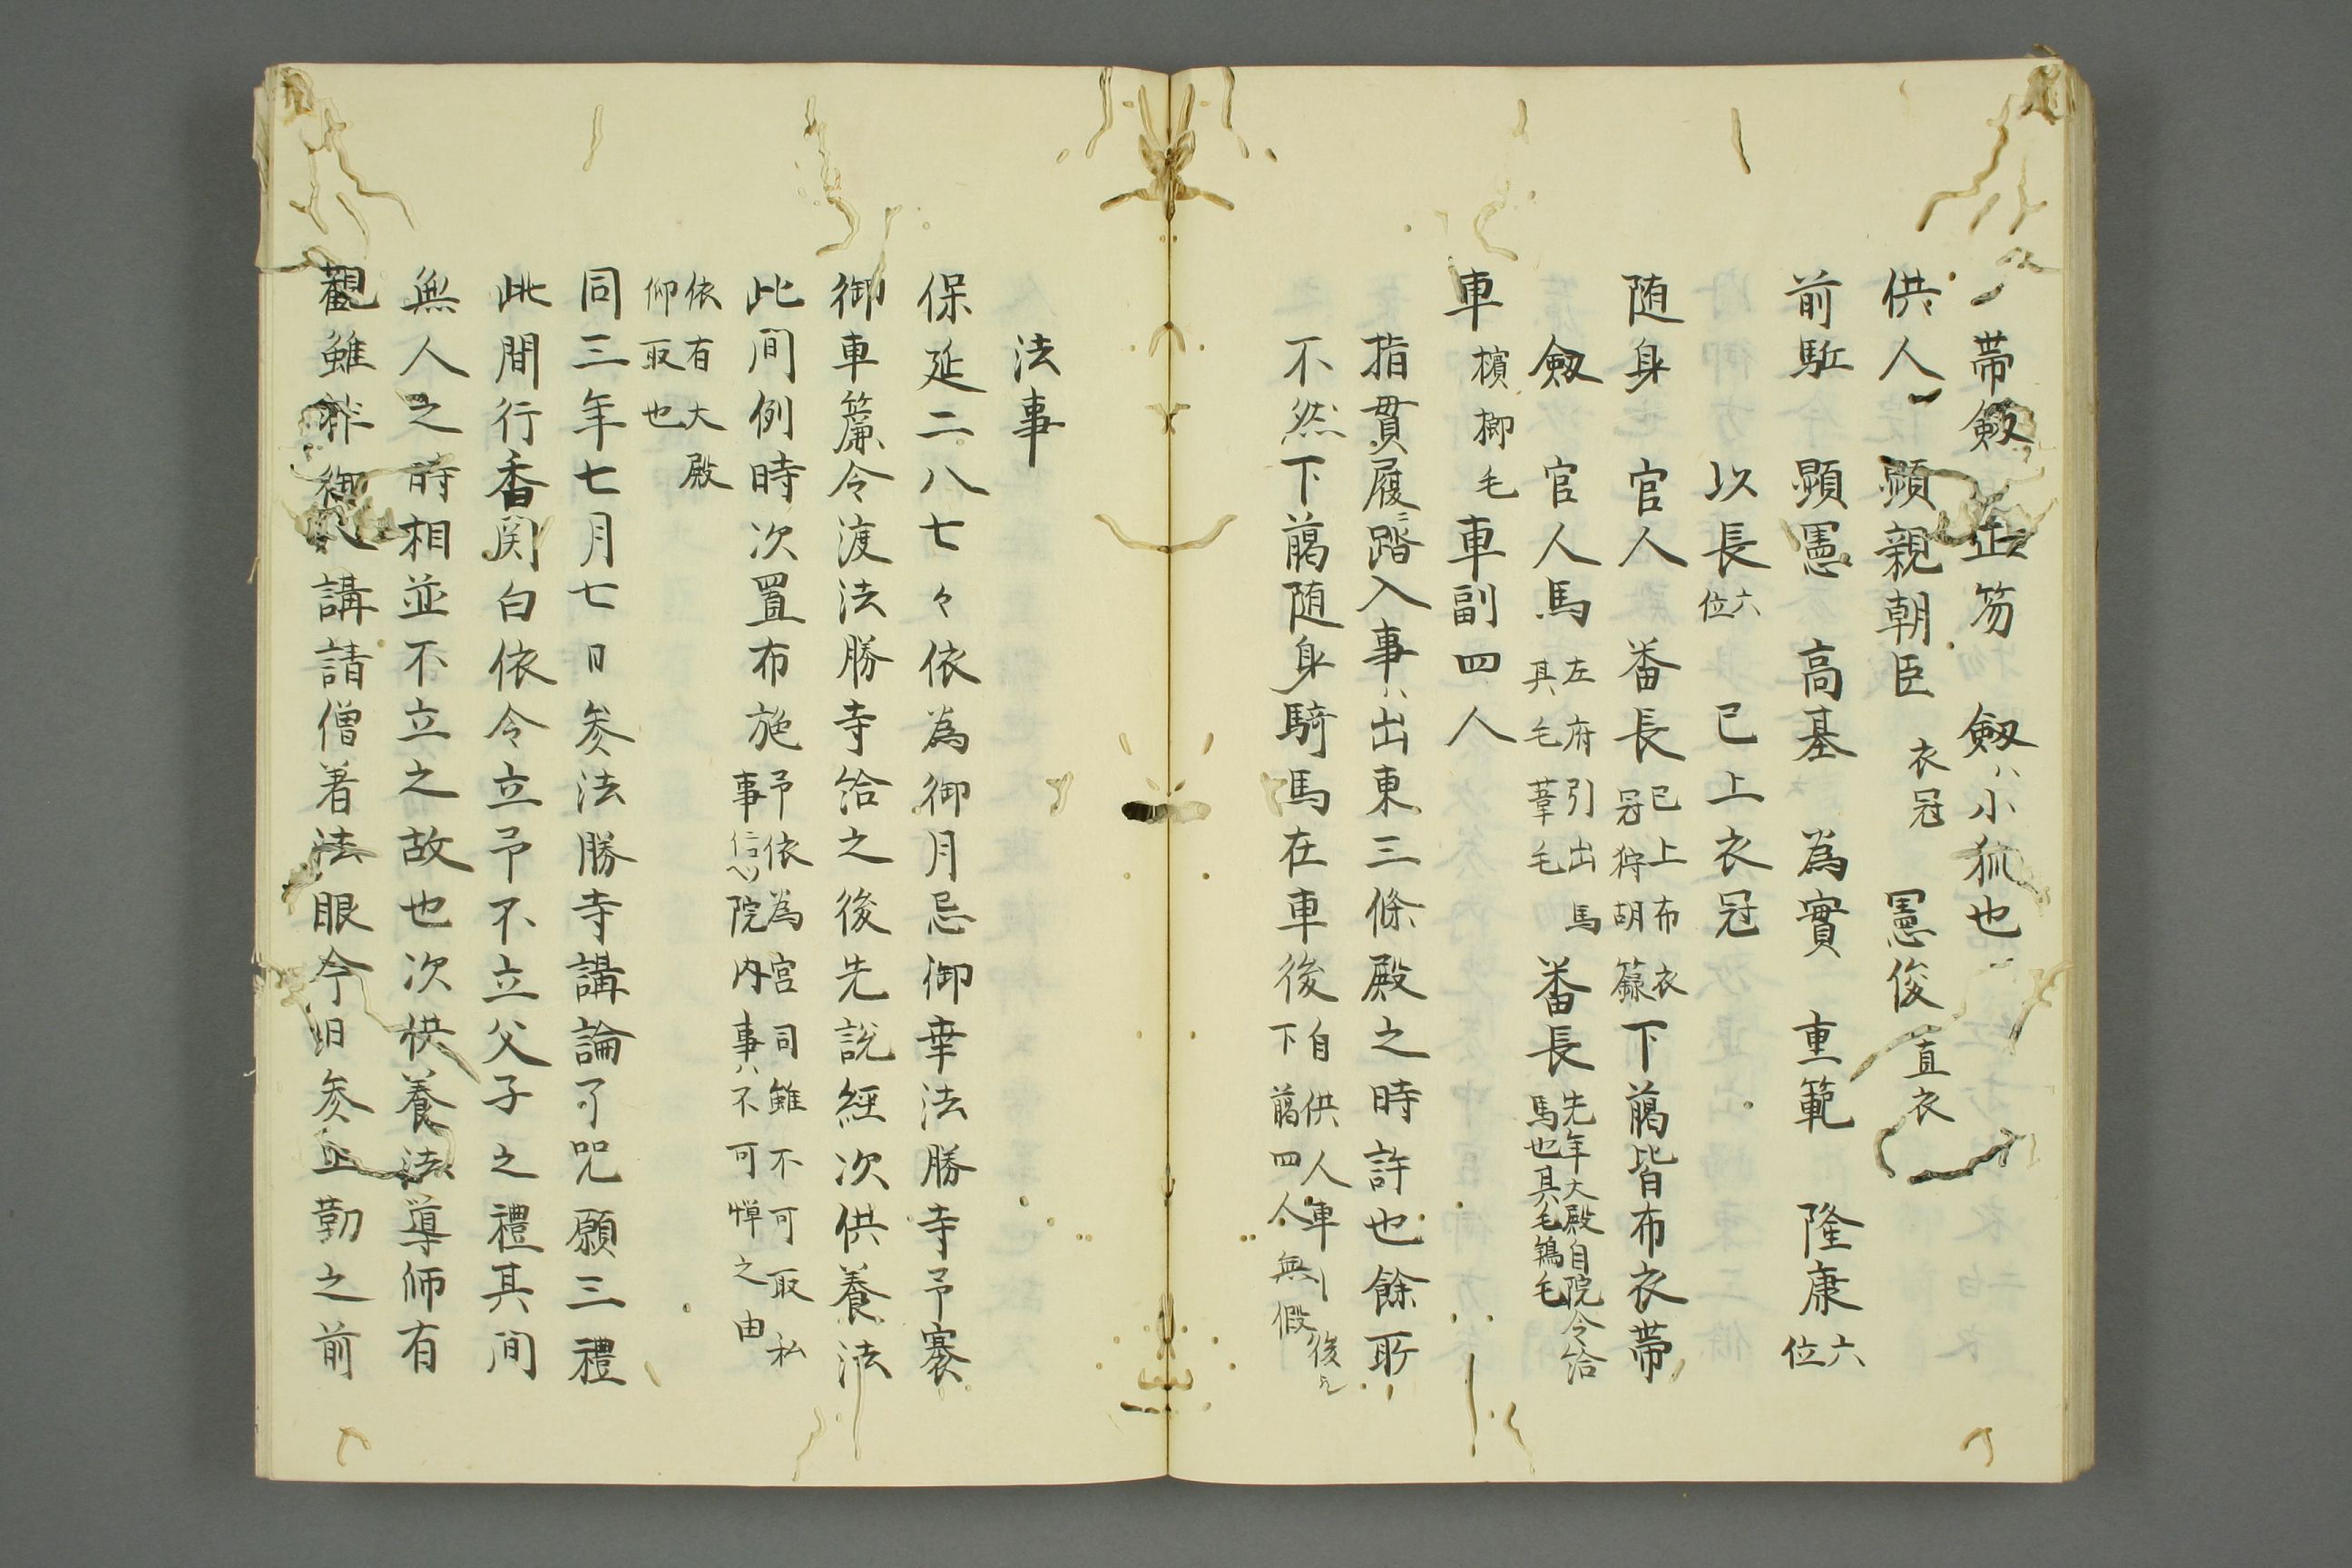 帯剱　正笏　剱ハ小狐也
供人　顕親朝臣　衣冠　憲俊　直衣
前駈　顕憲　高基　為實　重範　隆康六位
以長六位　已上衣冠
随身　官人　番長已上布衣冠狩胡籙　下﨟皆布衣帯
剱　官人馬左府引出馬具毛葦毛　番長先年大殿自院令給馬也具毛鴾毛
車檳榔毛　車副四人
指貫履ニ踏入事ハ出東三條殿之時許也餘所
不然下﨟随身騎馬在車後自供人車後下﨟四人無假
法事
保延二八七々依為御月忌御幸法勝寺予褰
御車簾令渡法勝寺給之後先説經次供養法
此间例時次置布施予依為宮司雖不可取私事院内事ハ不可憚之由
依有大殿仰取也
同三年七月七日参法勝寺講論了咒願三禮
此間行香関白依令立予不立父子之禮其间
無人之時相並不立之故也次供養法導師有
觀雖非御八講請僧着法眼今日参正勤之前